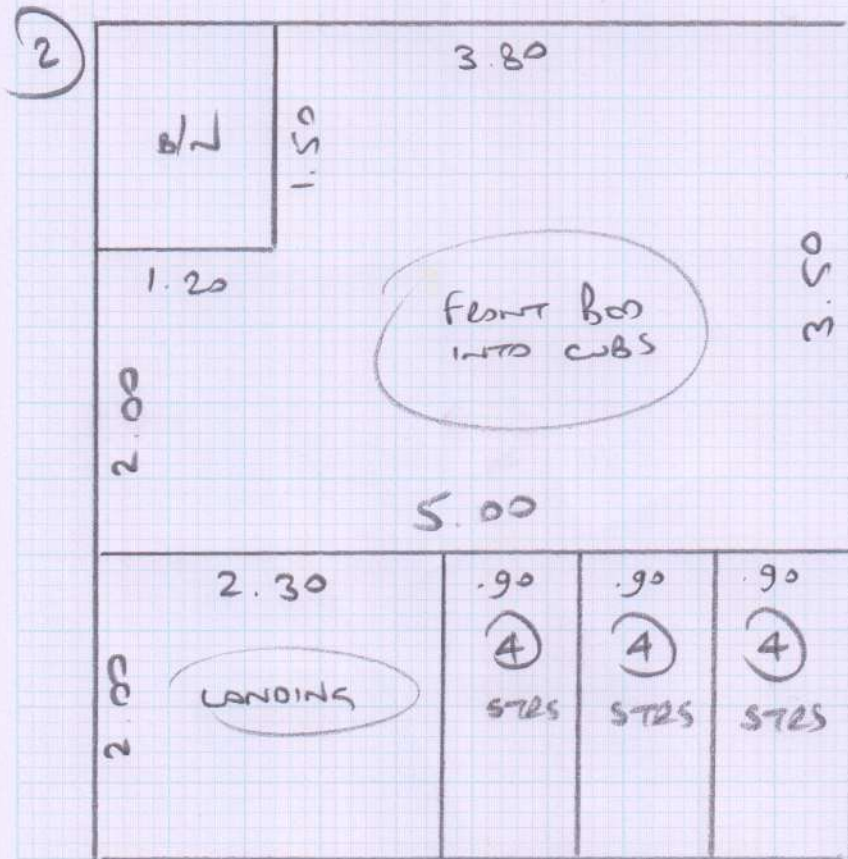 2
3.80
B/N
1.50
1.20
3.50
FRONT BED
INTO CUBS
2.00
5.00
2.30 .90 .90 .90
4 4 4
LANDING STRS STRS STRS
2.00